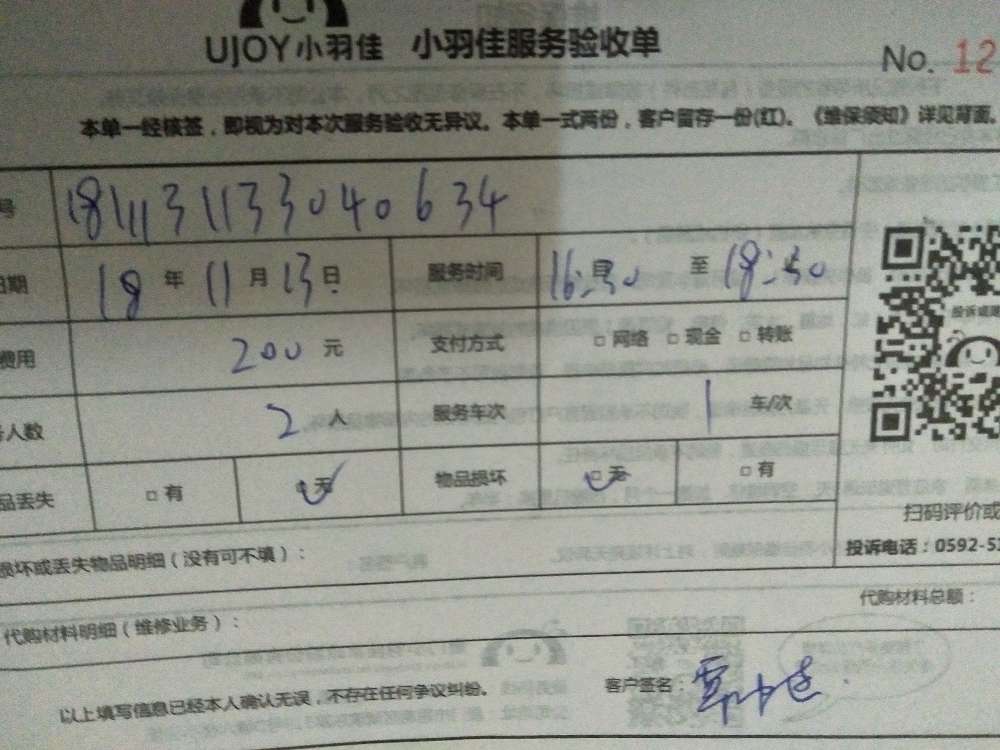 UJOY小羽佳 小羽佳服务验收单
No. 12
本单一经核签，即视为对本次服务验收无异议。本单一式两份，客户留存一份(红)。《维保须知》详见背面。
号 1811131133040634
日期 18 年 11 月 13 日 服务时间 16:30 至 18:30
费用 200 元 支付方式 □ 网络 □ 现金 □ 转账
人数 2 人 服务车次 1 车/次
品丢失 □ 有 □ 无 物品损坏 □ 无 □ 有
投诉或跟
扫码评价或
损坏或丢失物品明细（没有可不填）：
投诉电话：0592-52
代购材料明细（维修业务）：
代购材料总额：
以上填写信息已经本人确认无误，不存在任何争议纠纷。 客户签名：